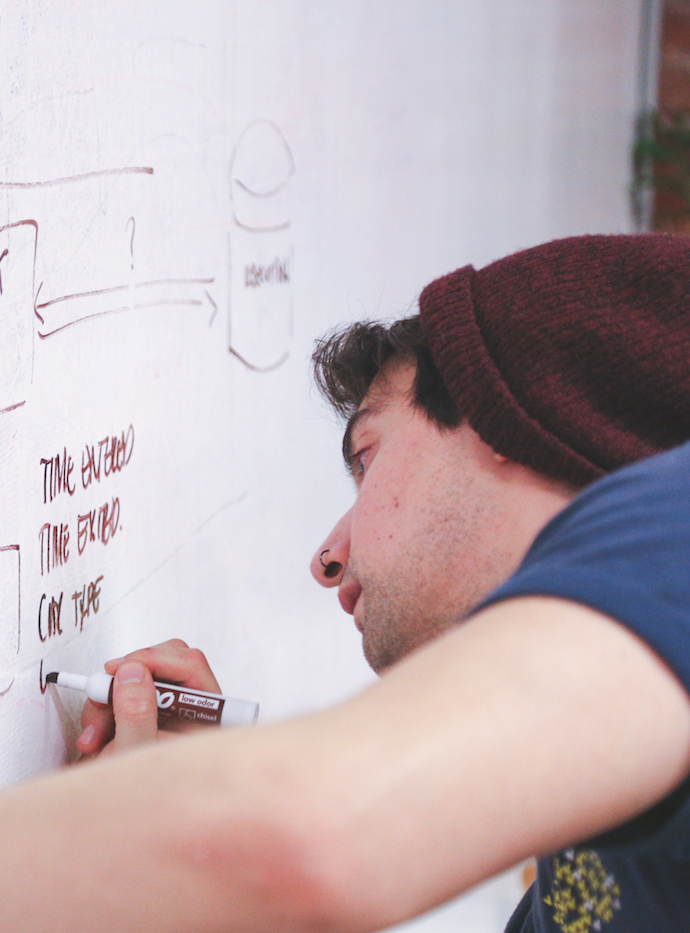 ?
TIME ENTERED
TIME EXITED.
CAR TYPE
O®
low odor
chisel